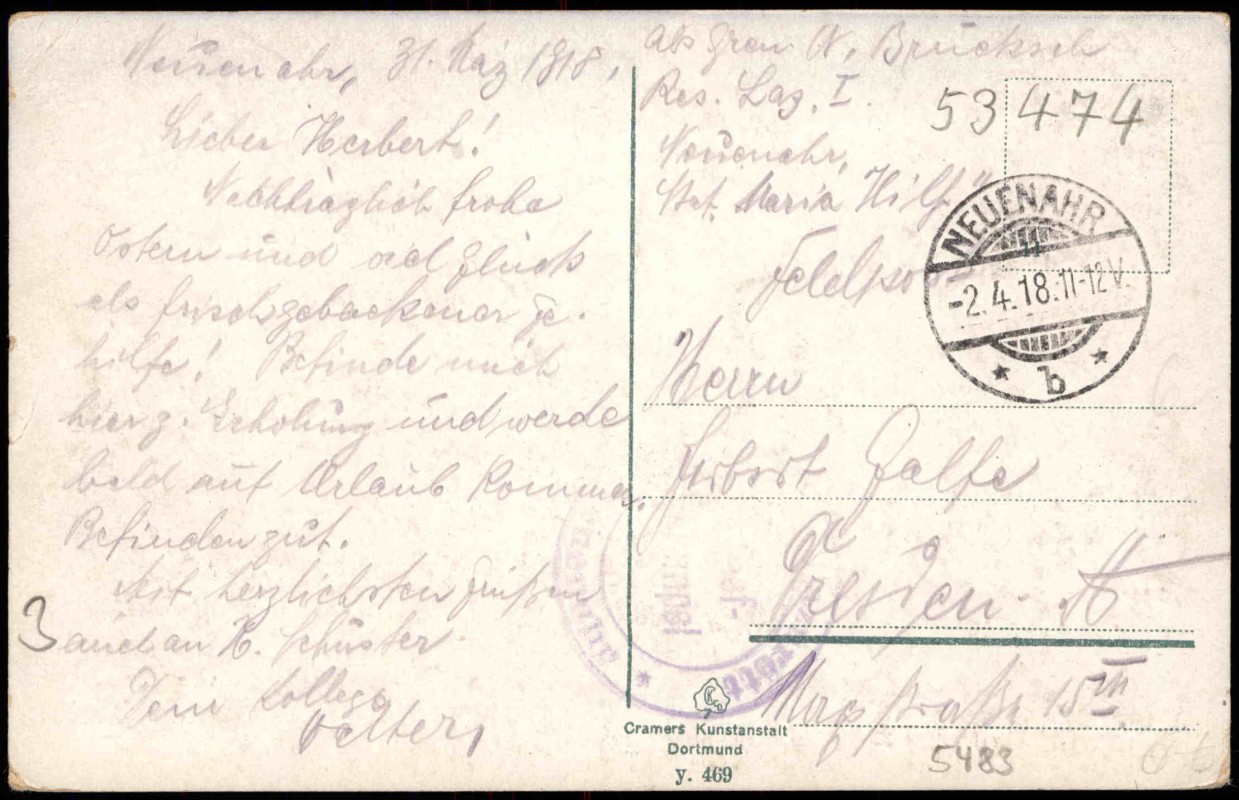 Neuenahr, 31. März 1918,
Lieber Herbert!
Nachträglich frohe
Ostern und viel Glück
als frischgebackener Ge-
hilfe! Befinde mich
hier z. Erholung und werde
bald auf Urlaub kommen.
Befinden gut.
Mit herzlichsten Grüßen
auch an H. Schuster
Dein Kollege
Walter
3
Abs Gren W. Brucksch
Res. Laz. I.
Neuenahr,
Stat. Maria Hilf"
Feldpost
53 474
NEUENAHR
-2.4.18.11-12V.
* b *
Herrn
Herbert
Dresden-A
straße 15 III
Cramers Kunstanstalt
Dortmund
y. 469
5483